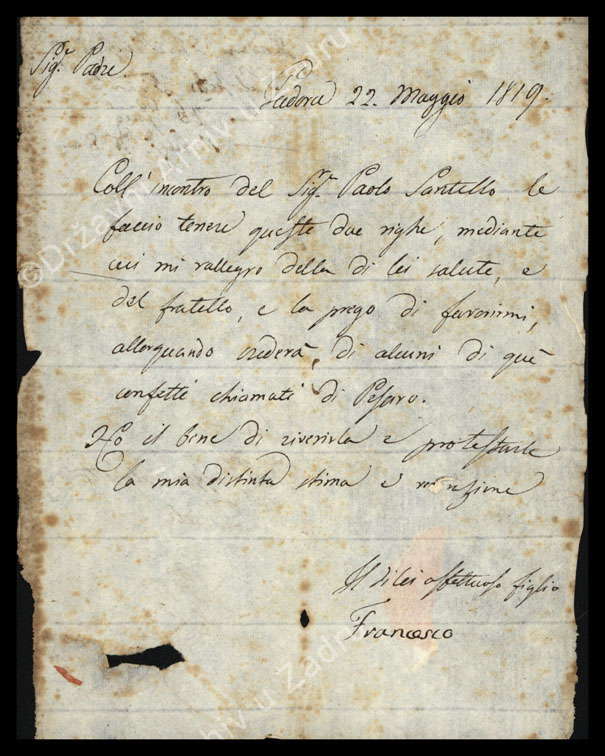 Sig.r Padre
Padova 22. Maggio 1819.
Coll' incontro del Sig.r Paolo Santello le
faccio tenere queste due righe, mediante
cui mi rallegro della di lei salute, e
del fratello, e la prego di favorirmi,
allorquando crederà, di alcuni di que'
confetti chiamati di Pesaro.
Ho il bene di riverirla e protestarle
la mia distinta stima e
Il di lei affettuoso figlio
Francesco
©Državni Arhiv u Zadru
Arhiv u Zadru